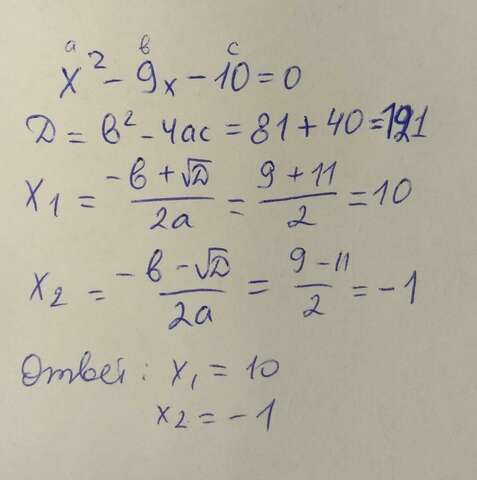 a в c
x² - 9x - 10 = 0
Д = в² - 4ac = 81 + 40 = 121
x₁ = (-в + √Д)/(2a) = (9 + 11)/2 = 10
x₂ = (-в - √Д)/(2a) = (9 - 11)/2 = -1
Ответ: x₁ = 10
x₂ = -1